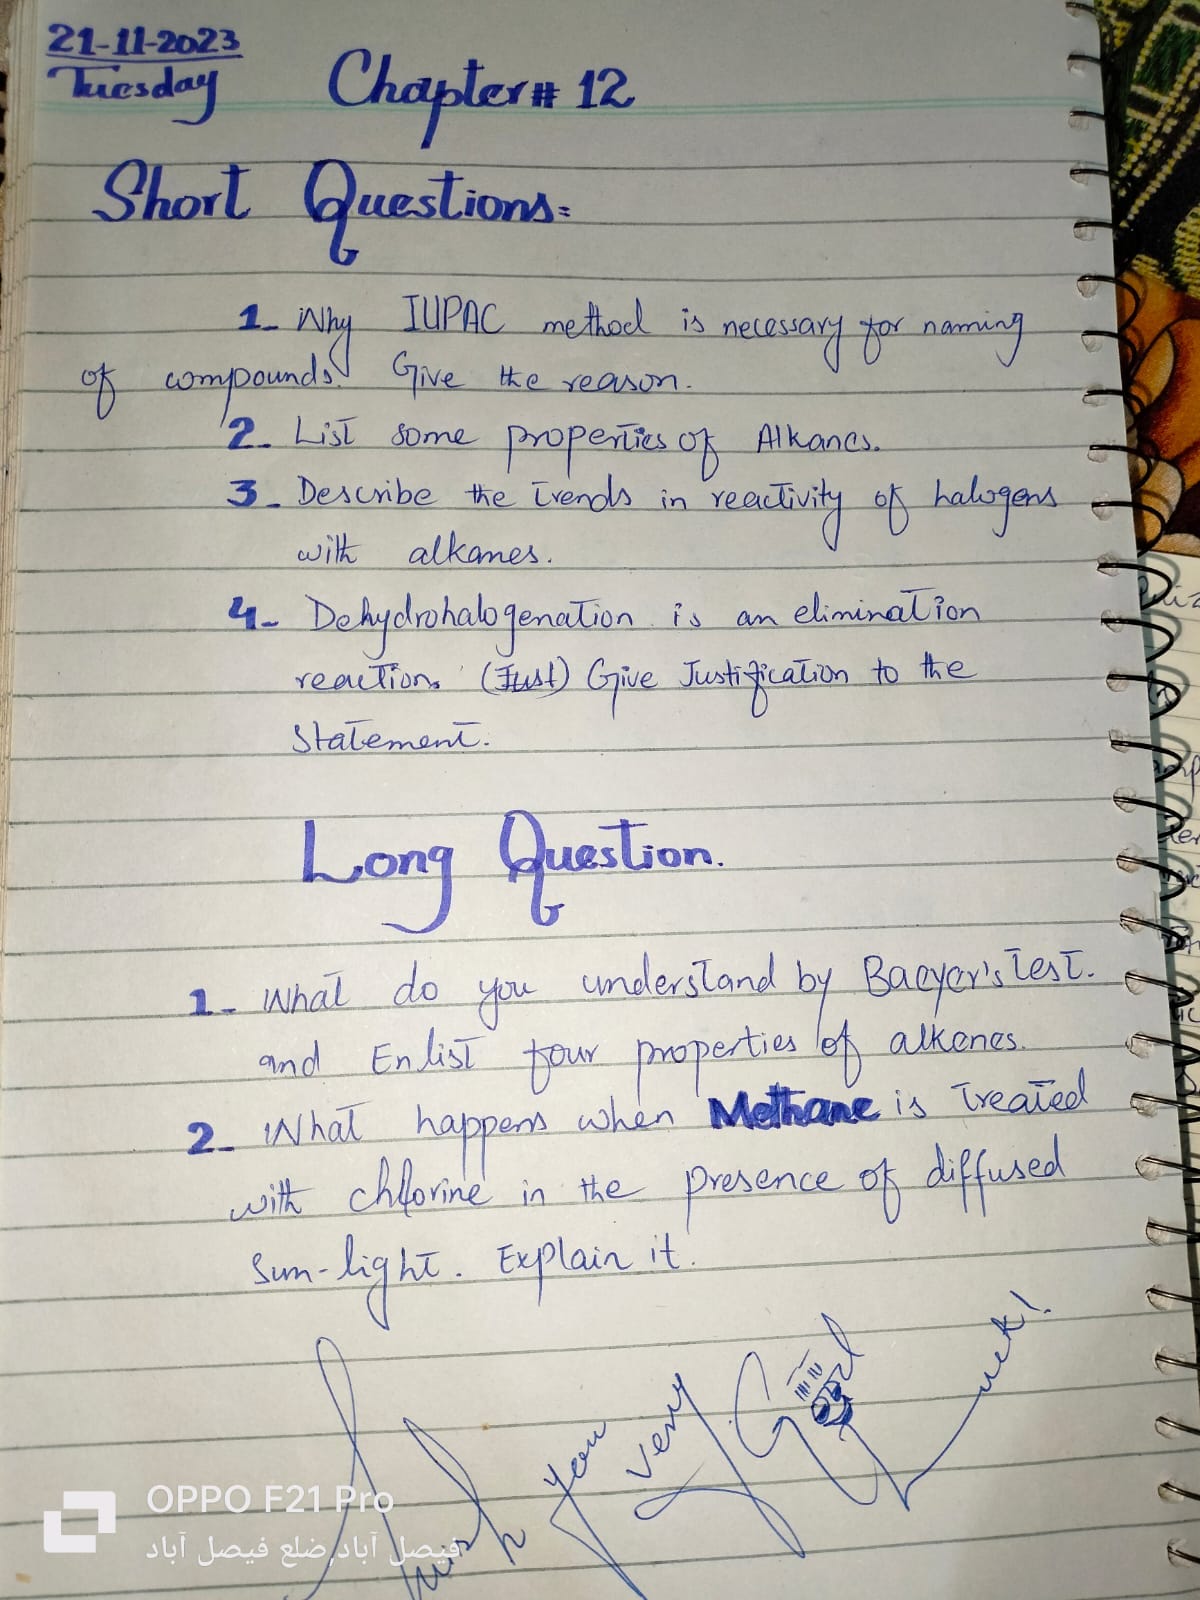 21-11-2023
Tuesday
Chapter # 12
Short Questions:
1- Why IUPAC method is necessary for naming
of compounds. Give the reason.
2- List some properties of Alkanes.
3- Describe the trends in reactivity of halogens
with alkanes.
4- Dehydrohalogenation is an elimination
reaction. (Just) Give Justification to the
statement.
Long Question.
1- What do you understand by Baeyer's test.
and Enlist four properties of alkenes.
2- What happens when Methane is treated
with chlorine in the presence of diffused
Sun-light. Explain it.
I wish you very Good Luck!
OPPO F21 Pro
فیصل آباد,ضلع فیصل آباد